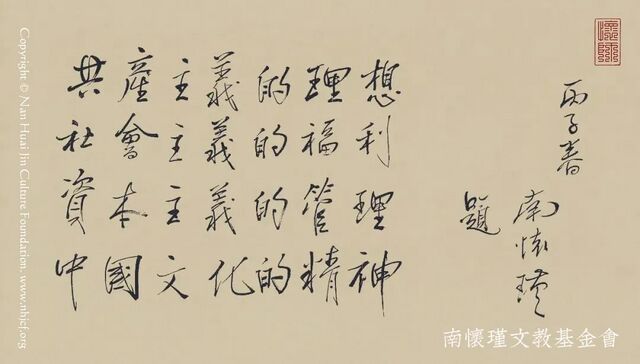 共產主義的理想
社會主義的福利
資本主義的管理
中國文化的精神
丙子春
南懷瑾
題
南懷瑾文教基金會
Copyright © Nan Huai Jin Culture Foundation. www.nhjcf.org